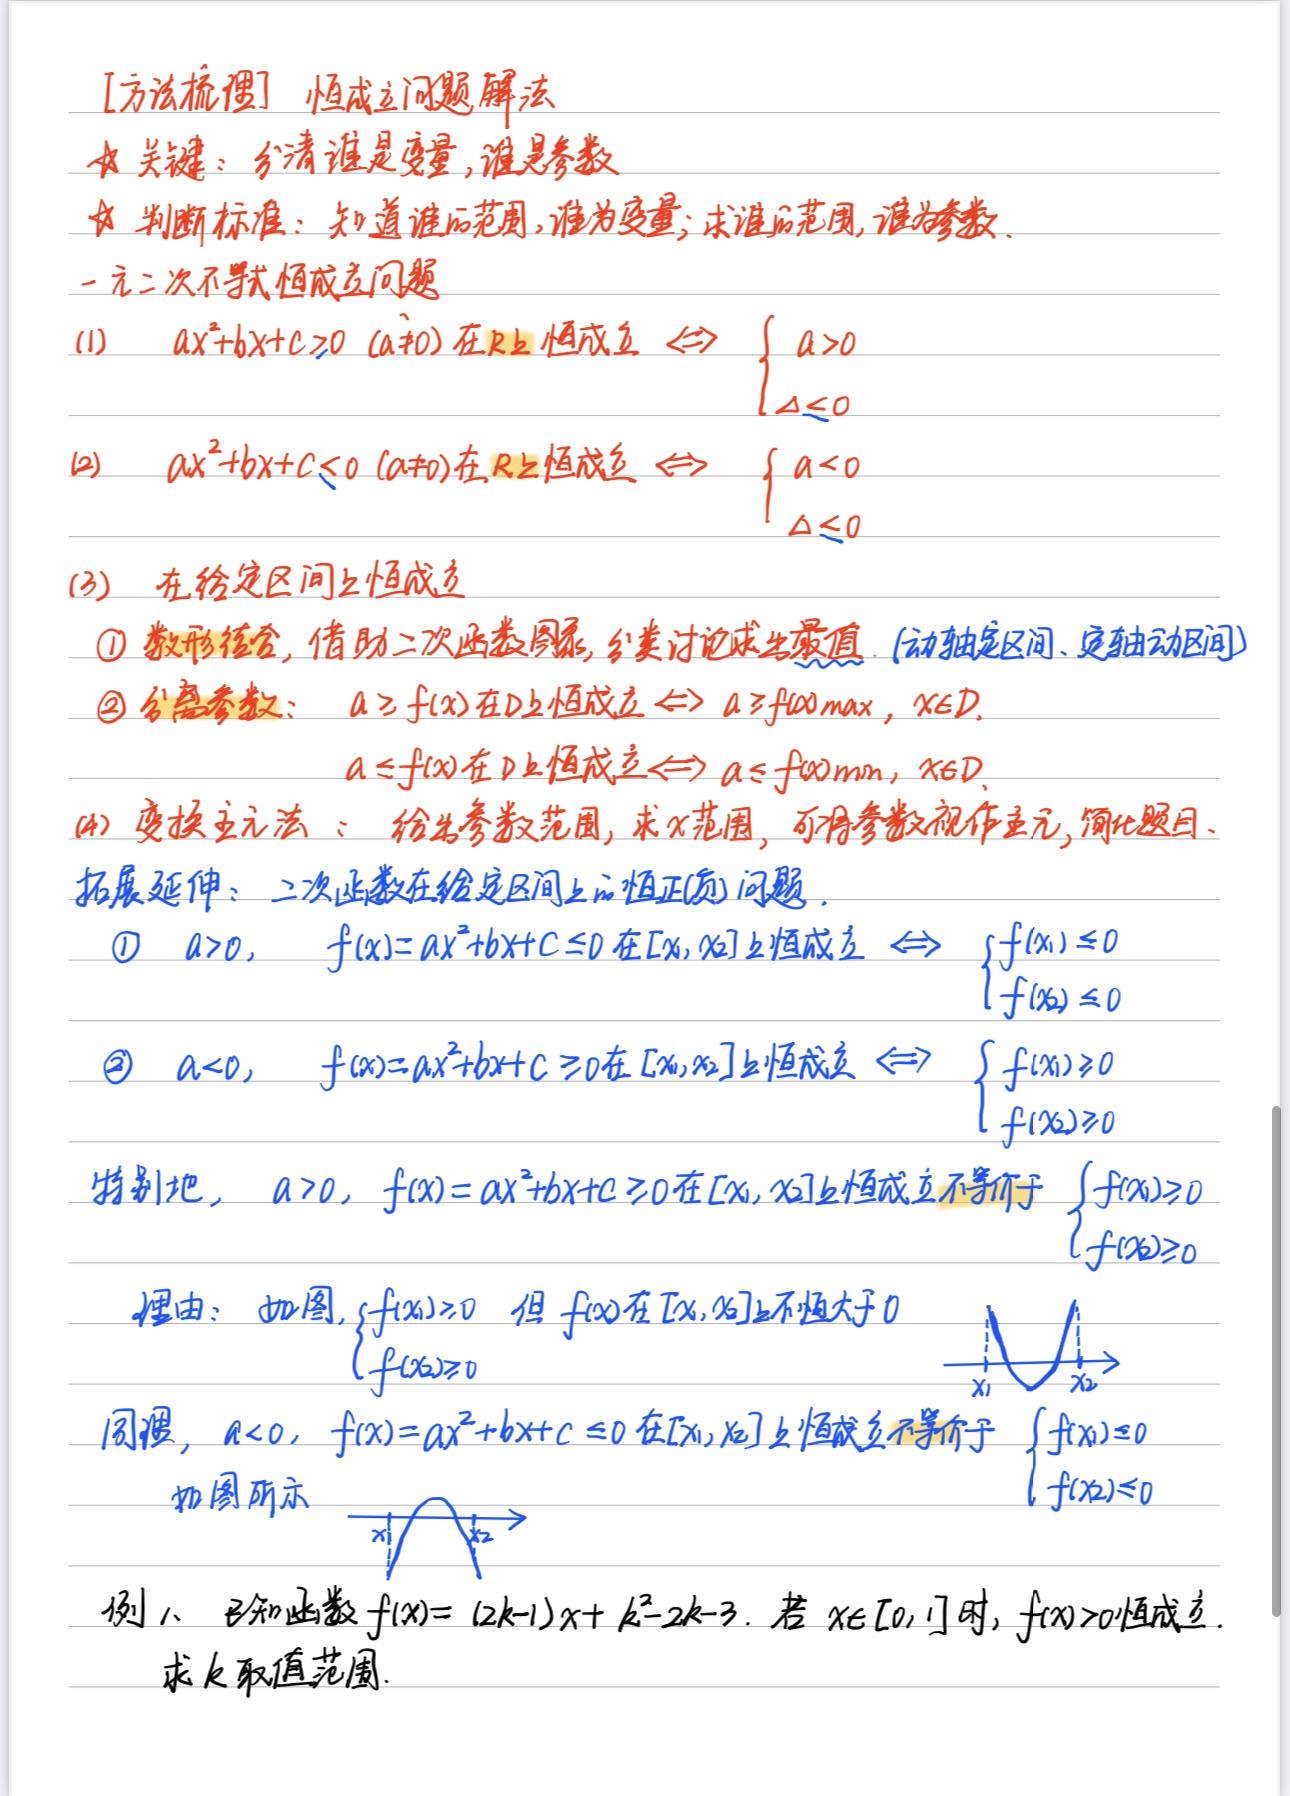 [方法梳理] 恒成立问题解法
☆ 关键：分清谁是变量,谁是参数
☆ 判断标准：知道谁的范围,谁为变量;求谁的范围,谁为参数.
一元二次不等式恒成立问题
(1) ax²+bx+c≥0 (a≠0) 在R上恒成立 ⇔ { a>0
Δ≤0
(2) ax²+bx+c≤0 (a≠0)在R上恒成立 ⇔ { a<0
Δ≤0
(3) 在给定区间上恒成立
① 数形结合, 借助二次函数图象, 分类讨论求出最值. (动轴定区间、定轴动区间)
② 分离参数： a≥f(x)在D上恒成立⇔ a≥f(x)max, x∈D.
a≤f(x)在D上恒成立⇔ a≤f(x)min, x∈D.
(4) 变换主元法： 给出参数范围, 求x范围, 可将参数视作主元, 简化题目.
拓展延伸：二次函数在给定区间上的恒正(负)问题.
① a>0, f(x)=ax²+bx+c≤0在[x₁,x₂]上恒成立 ⇔ { f(x₁)≤0
f(x₂)≤0
② a<0, f(x)=ax²+bx+c≥0在[x₁,x₂]上恒成立 ⇔ { f(x₁)≥0
f(x₂)≥0
特别地, a>0, f(x)=ax²+bx+c≥0在[x₁,x₂]上恒成立不等价于 { f(x₁)≥0
f(x₂)≥0
理由：如图, { f(x₁)≥0 但 f(x)在[x₁,x₂]上不恒大于0
f(x₂)≥0
x₁ x₂
同理, a<0, f(x)=ax²+bx+c≤0在[x₁,x₂]上恒成立不等价于 { f(x₁)≤0
如图所示 f(x₂)≤0
x₁ x₂
例1、已知函数f(x)=(2k-1)x+k²-2k-3. 若x∈[0,1]时, f(x)>0恒成立.
求k取值范围.